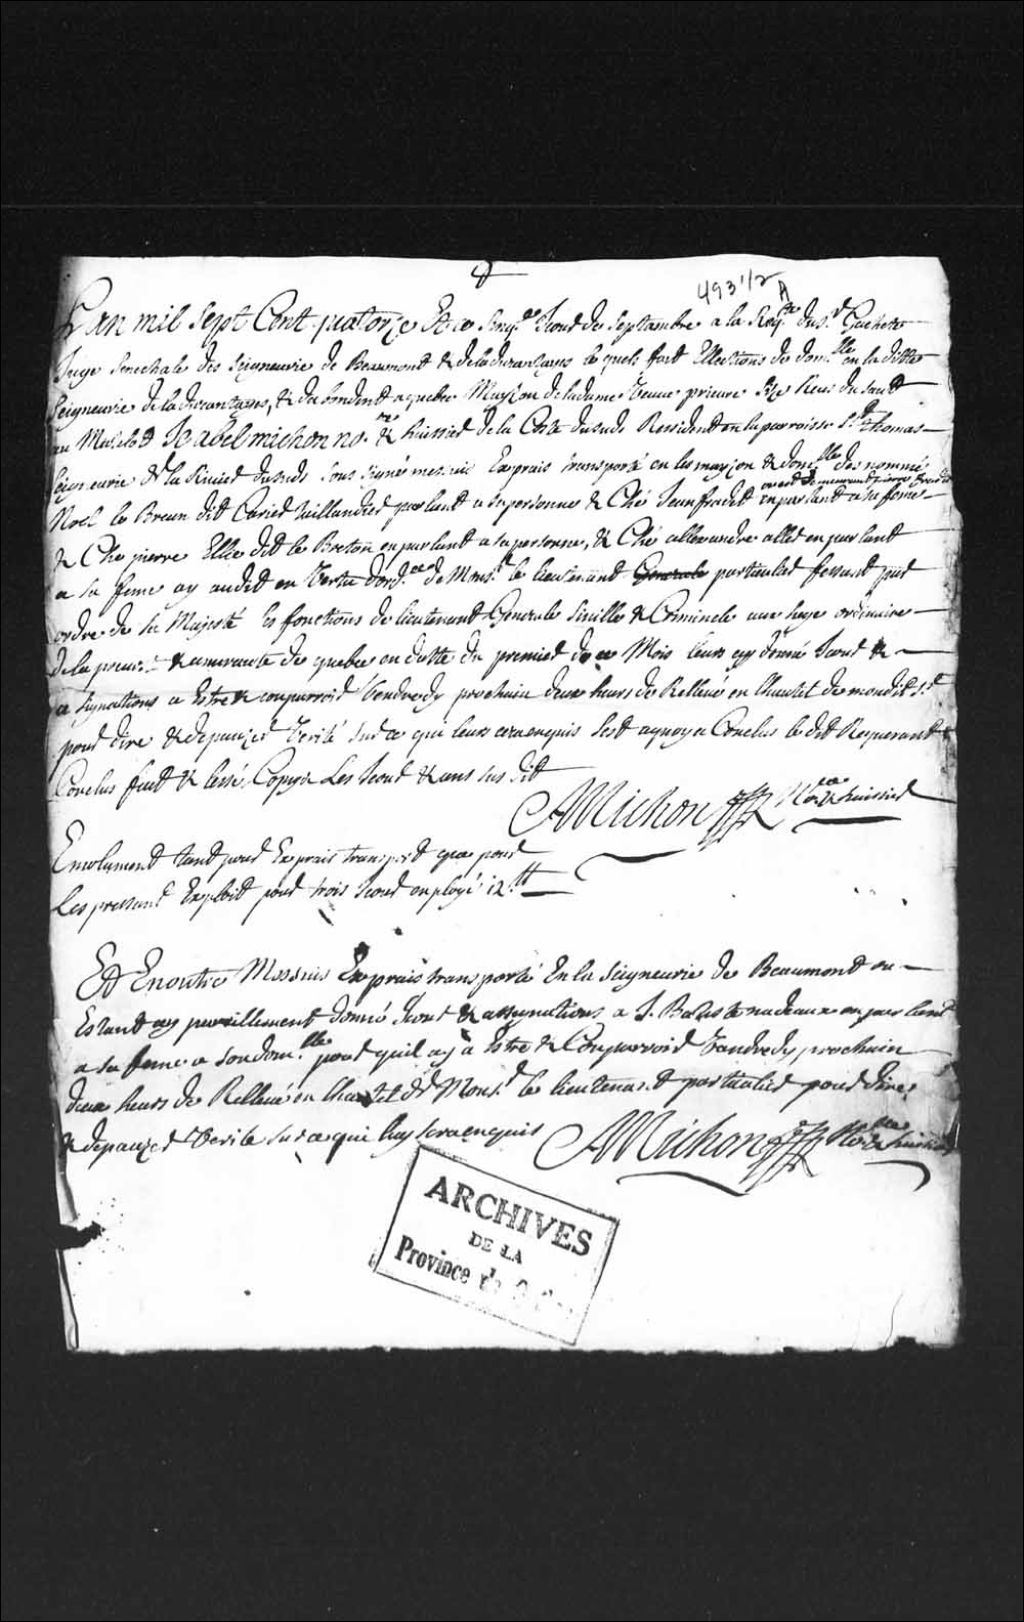 493 1/2
A
L'an mil sept Cent quatorze & ce Sinq.e Jour de Septambre a la Req.te du S.r Gachet
Juge Senechale des Seigneurie de Beaumont & de la durantayes le quels fait Ellections de dom.lle en la ditte
Seigneurie de la durantayes, & du sendent a quebec Mayson de la dame Veuve prieure Size Rue du Sault
au Matelot Je abel michon no.re & huissier de la Coste du sude Ressident en la parroisse S.t Thomas
Seigneurie de la Rivier du sude Sous signé me suis Exprais transporté en les mayson & domi.lle des nommé
Noel le Breun dit Carier taillandier parlant a sa personne & Ché Jean fradet en parlant a sa feme
& Ché pierre Elie dit le Breton en parlant a sa personne, & Ché allexandre allet en parlant
a sa feme ay audit en Vertu d'ord.ce de Mons.r le lieutenant Generale particulier fessant par
ordre de Sa Majesté les fonctions de lieutenant Generale Siville & Criminele au siege ordinaire
de la prevo.té & amirauté de quebec en datte du premier de ce Mois leurs ay donné Jour &
a signations a Estre & comparroir Vendredy prochain deux heurs de Rellevé en l'hautel de mondit S.r
pour dire & depauzer Verité sur ce qui leurs cera enquis Sest a quoy a Conclus le dit Requerant &
Conclus fait & lessé Copye Les Jour & ans sus dit
AMichon No.re & huissier
Emolument tant pour Exprais transport que pour
les pressant Exploit pour trois Jour employé 12 ₶
Et En outre Me suis Exprais transporté En la Seigneurie de Beaumont ou
Estant ay pareillement donné Jour & assignations a J. Batiste nadeaux en parlant
a sa feme a son dom.lle pour quil ay a Estre & Comparroir Vandredy prochain
deux heurs de Rellevé en l'hautel de Mons.r le lieutenant partiulier pour dire
& depauzer Verité sur ce qui luy sera enquis AMichon No.re & huissier
ARCHIVES
DE LA
Province de